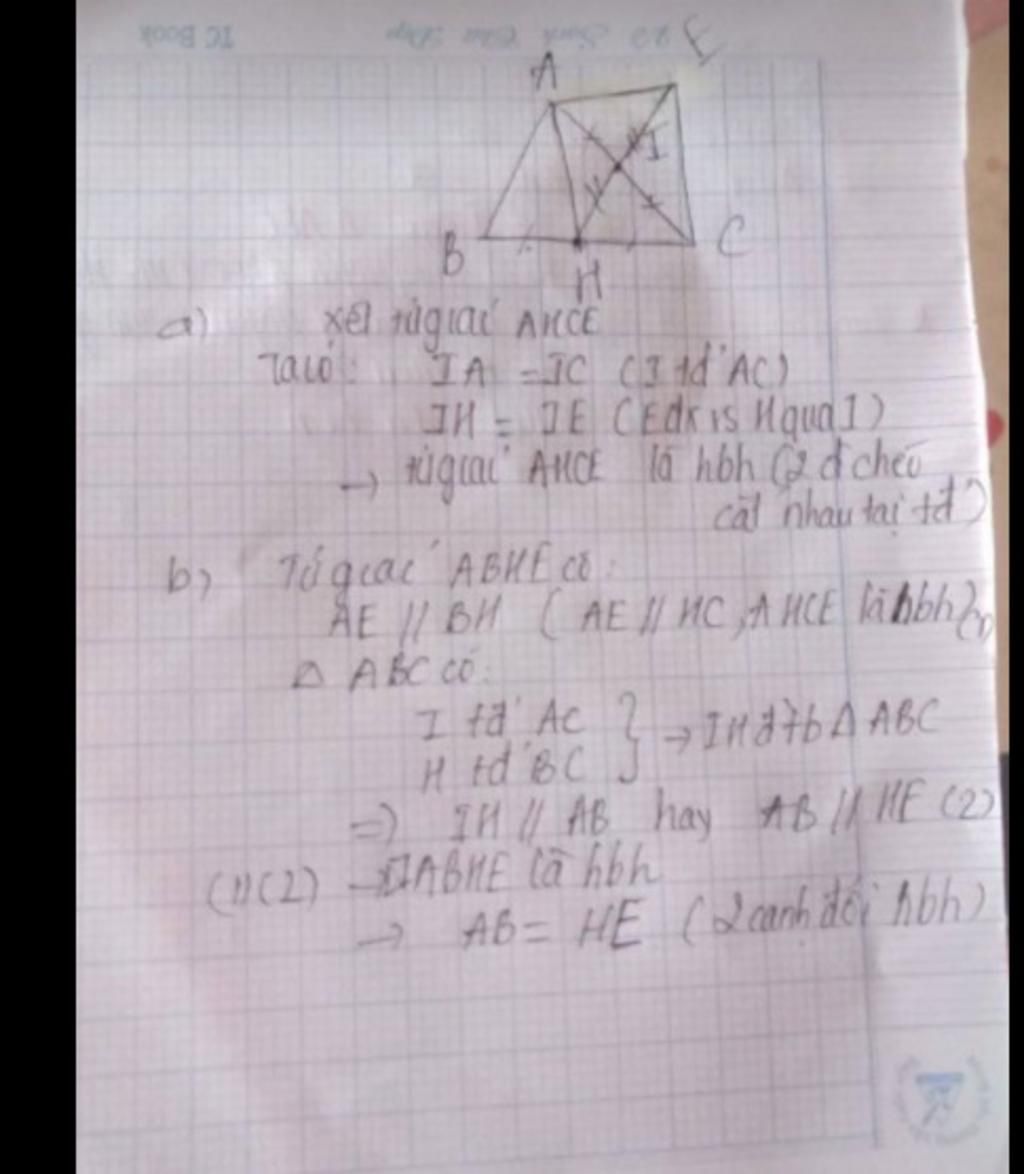 TC Book
A
E
I
B
H
C
a) xét tứ giác AHCE
Ta có: IA = IC (I tđ' AC)
IH = IE (E đx vs H qua I)
→ tứ giác AHCE là hbh (2 đ chéo
cắt nhau tại tđ')
b, Tứ giác ABHE có:
AE // BH ( AE // HC, AHCE là hbh) (1)
Δ ABC có:
I tđ' AC } → IH đtb Δ ABC
H tđ' BC
=) IH // AB hay AB // HE (2)
(1)(2) → ABHE là hbh
→ AB = HE (2 cạnh đối hbh)